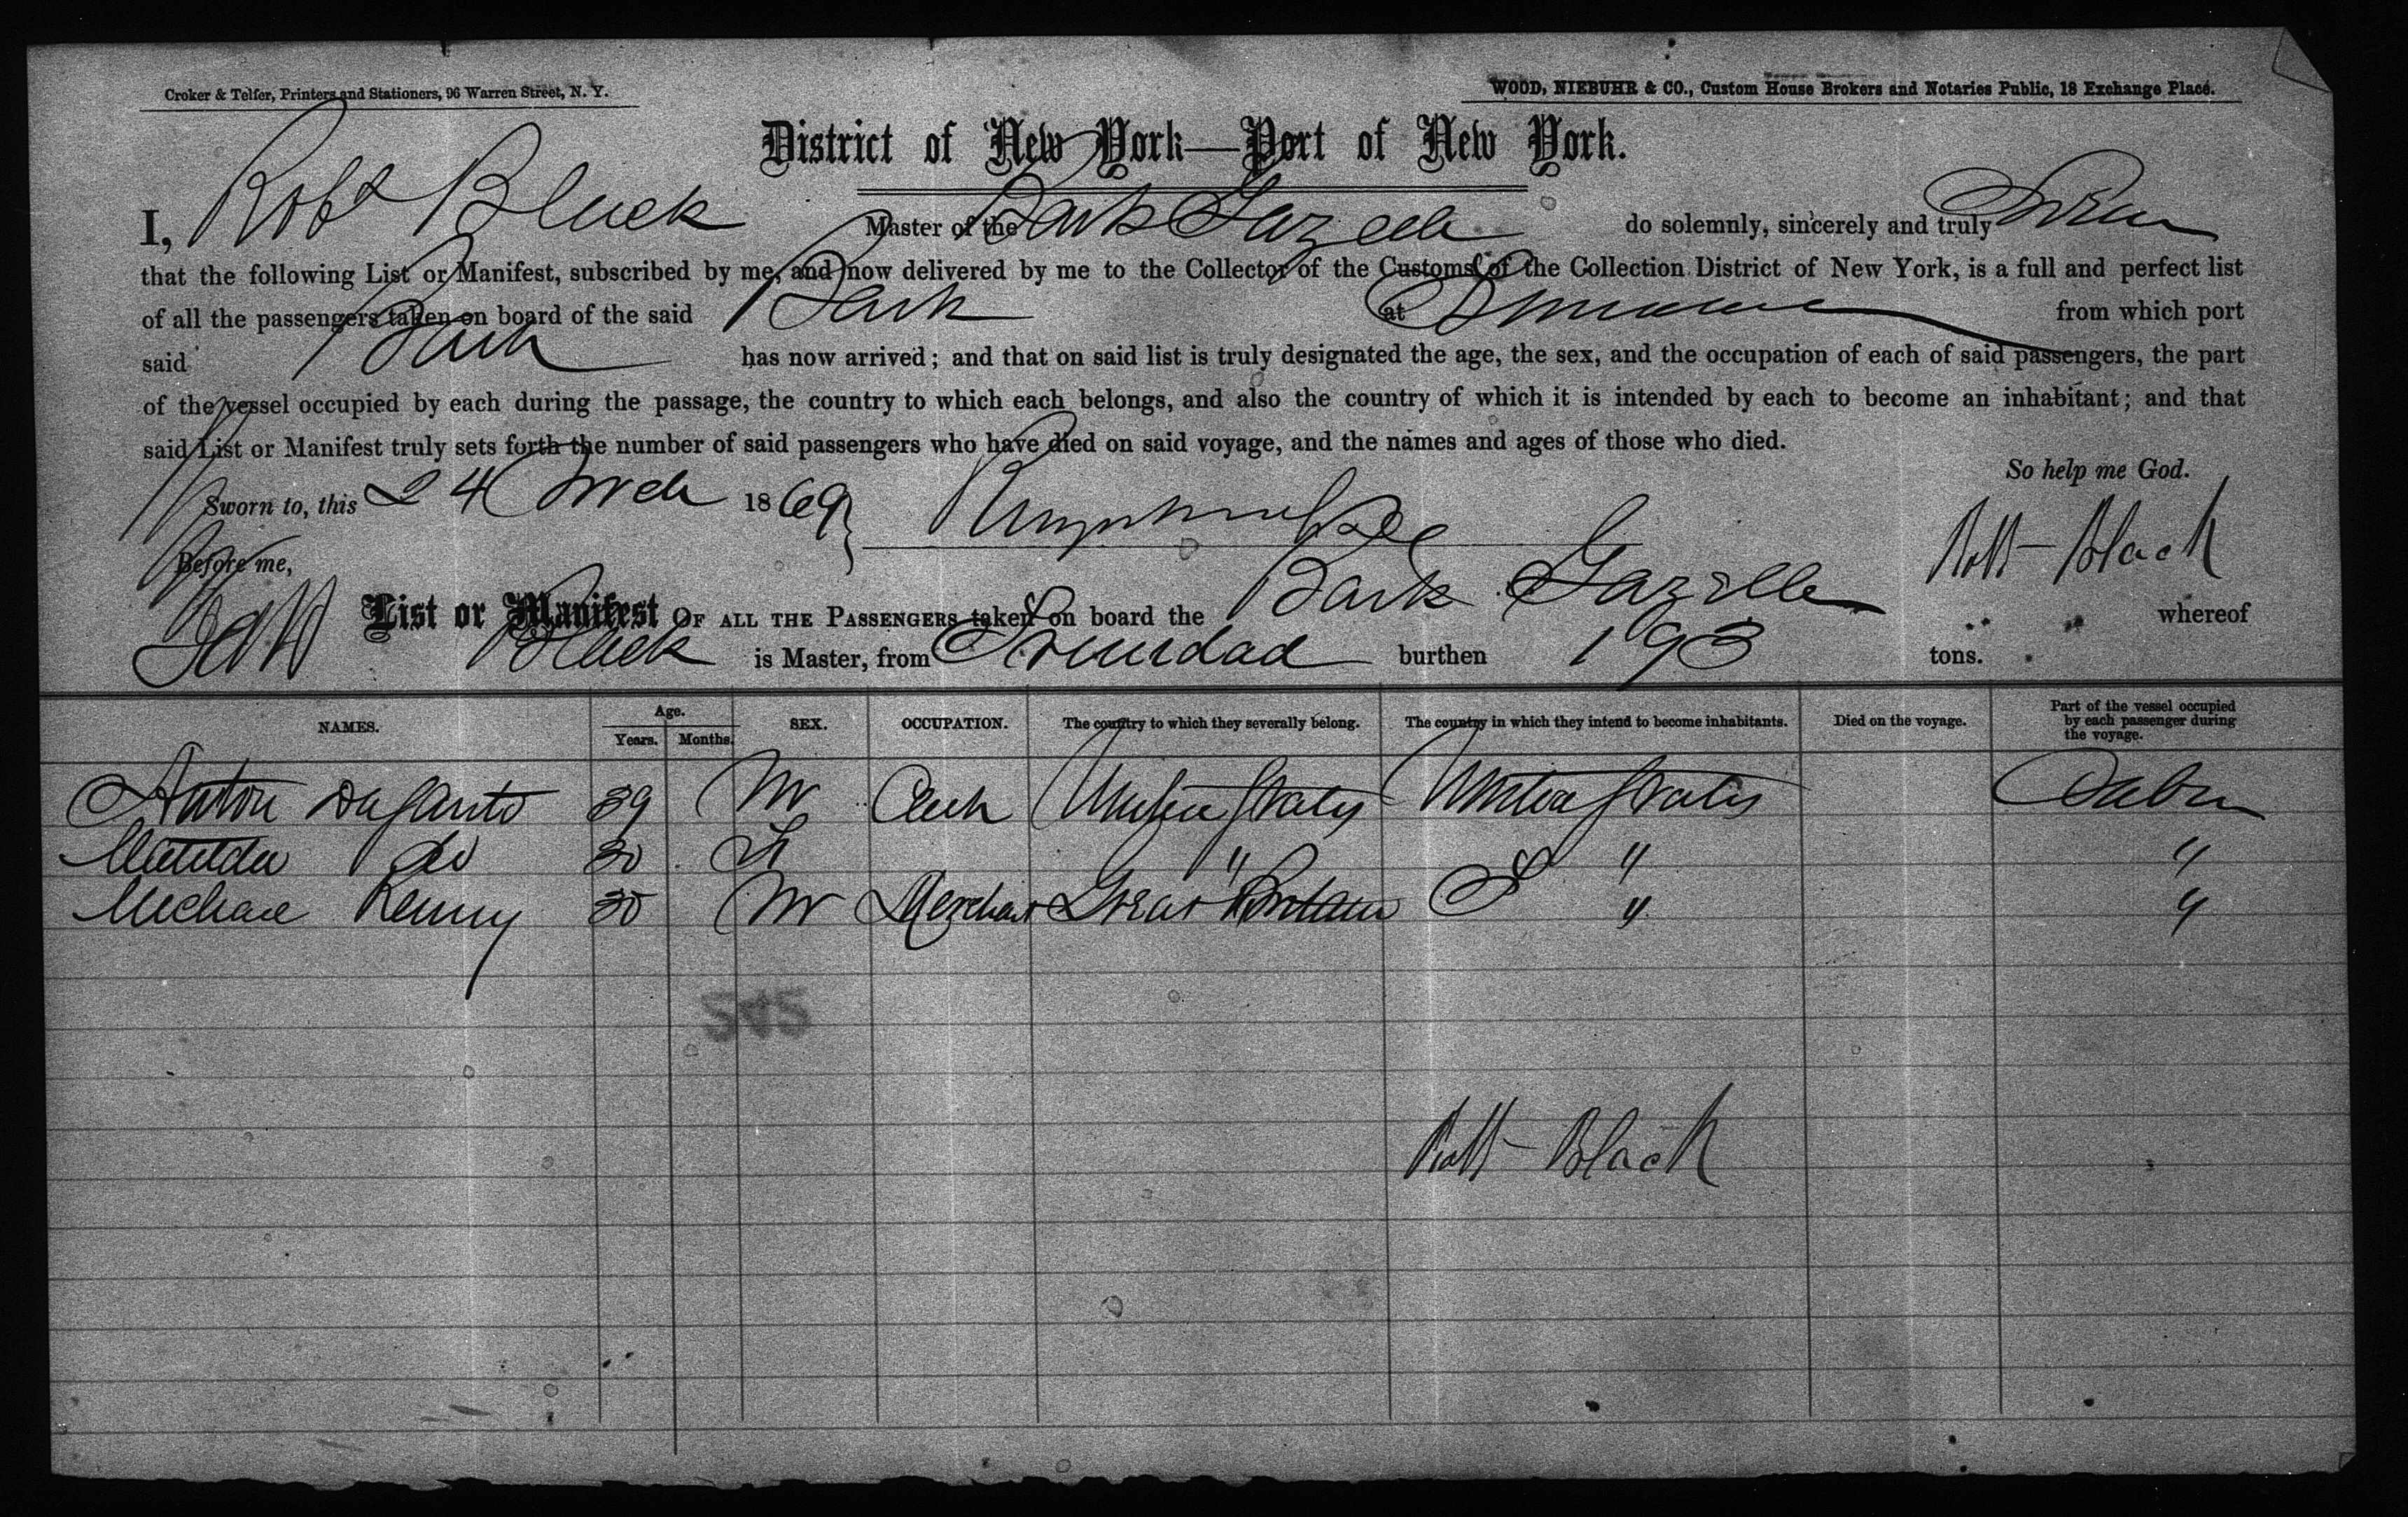 Croker & Telfer, Printers and Stationers, 96 Warren Street, N. Y.
WOOD, NIEBUHR & CO., Custom House Brokers and Notaries Public, 18 Exchange Place.
District of New York—Port of New York.
I, Robt Black Master of the Bark Gazelle do solemnly, sincerely and truly Swear
that the following List or Manifest, subscribed by me, and now delivered by me to the Collector of the Customs of the Collection District of New York, is a full and perfect list
of all the passengers taken on board of the said Bark at from which port
said Bark has now arrived; and that on said list is truly designated the age, the sex, and the occupation of each of said passengers, the part
of the vessel occupied by each during the passage, the country to which each belongs, and also the country of which it is intended by each to become an inhabitant; and that
said List or Manifest truly sets forth the number of said passengers who have died on said voyage, and the names and ages of those who died.
So help me God.
Sworn to, this 24 March 1869
Robt Black
Before me,
List or Manifest OF ALL THE PASSENGERS taken on board the Bark Gazelle whereof
Black is Master, from Trinidad burthen 193 tons.
NAMES. Age. Years. Months. SEX. OCCUPATION. The country to which they severally belong. The country in which they intend to become inhabitants. Died on the voyage. Part of the vessel occupied by each passenger during the voyage.
Anton 39 M Clerk United States United States Cabin
Matilda do 30 F " " "
Michael Kenny 30 M Merchant Great Britain " "
Robt Black